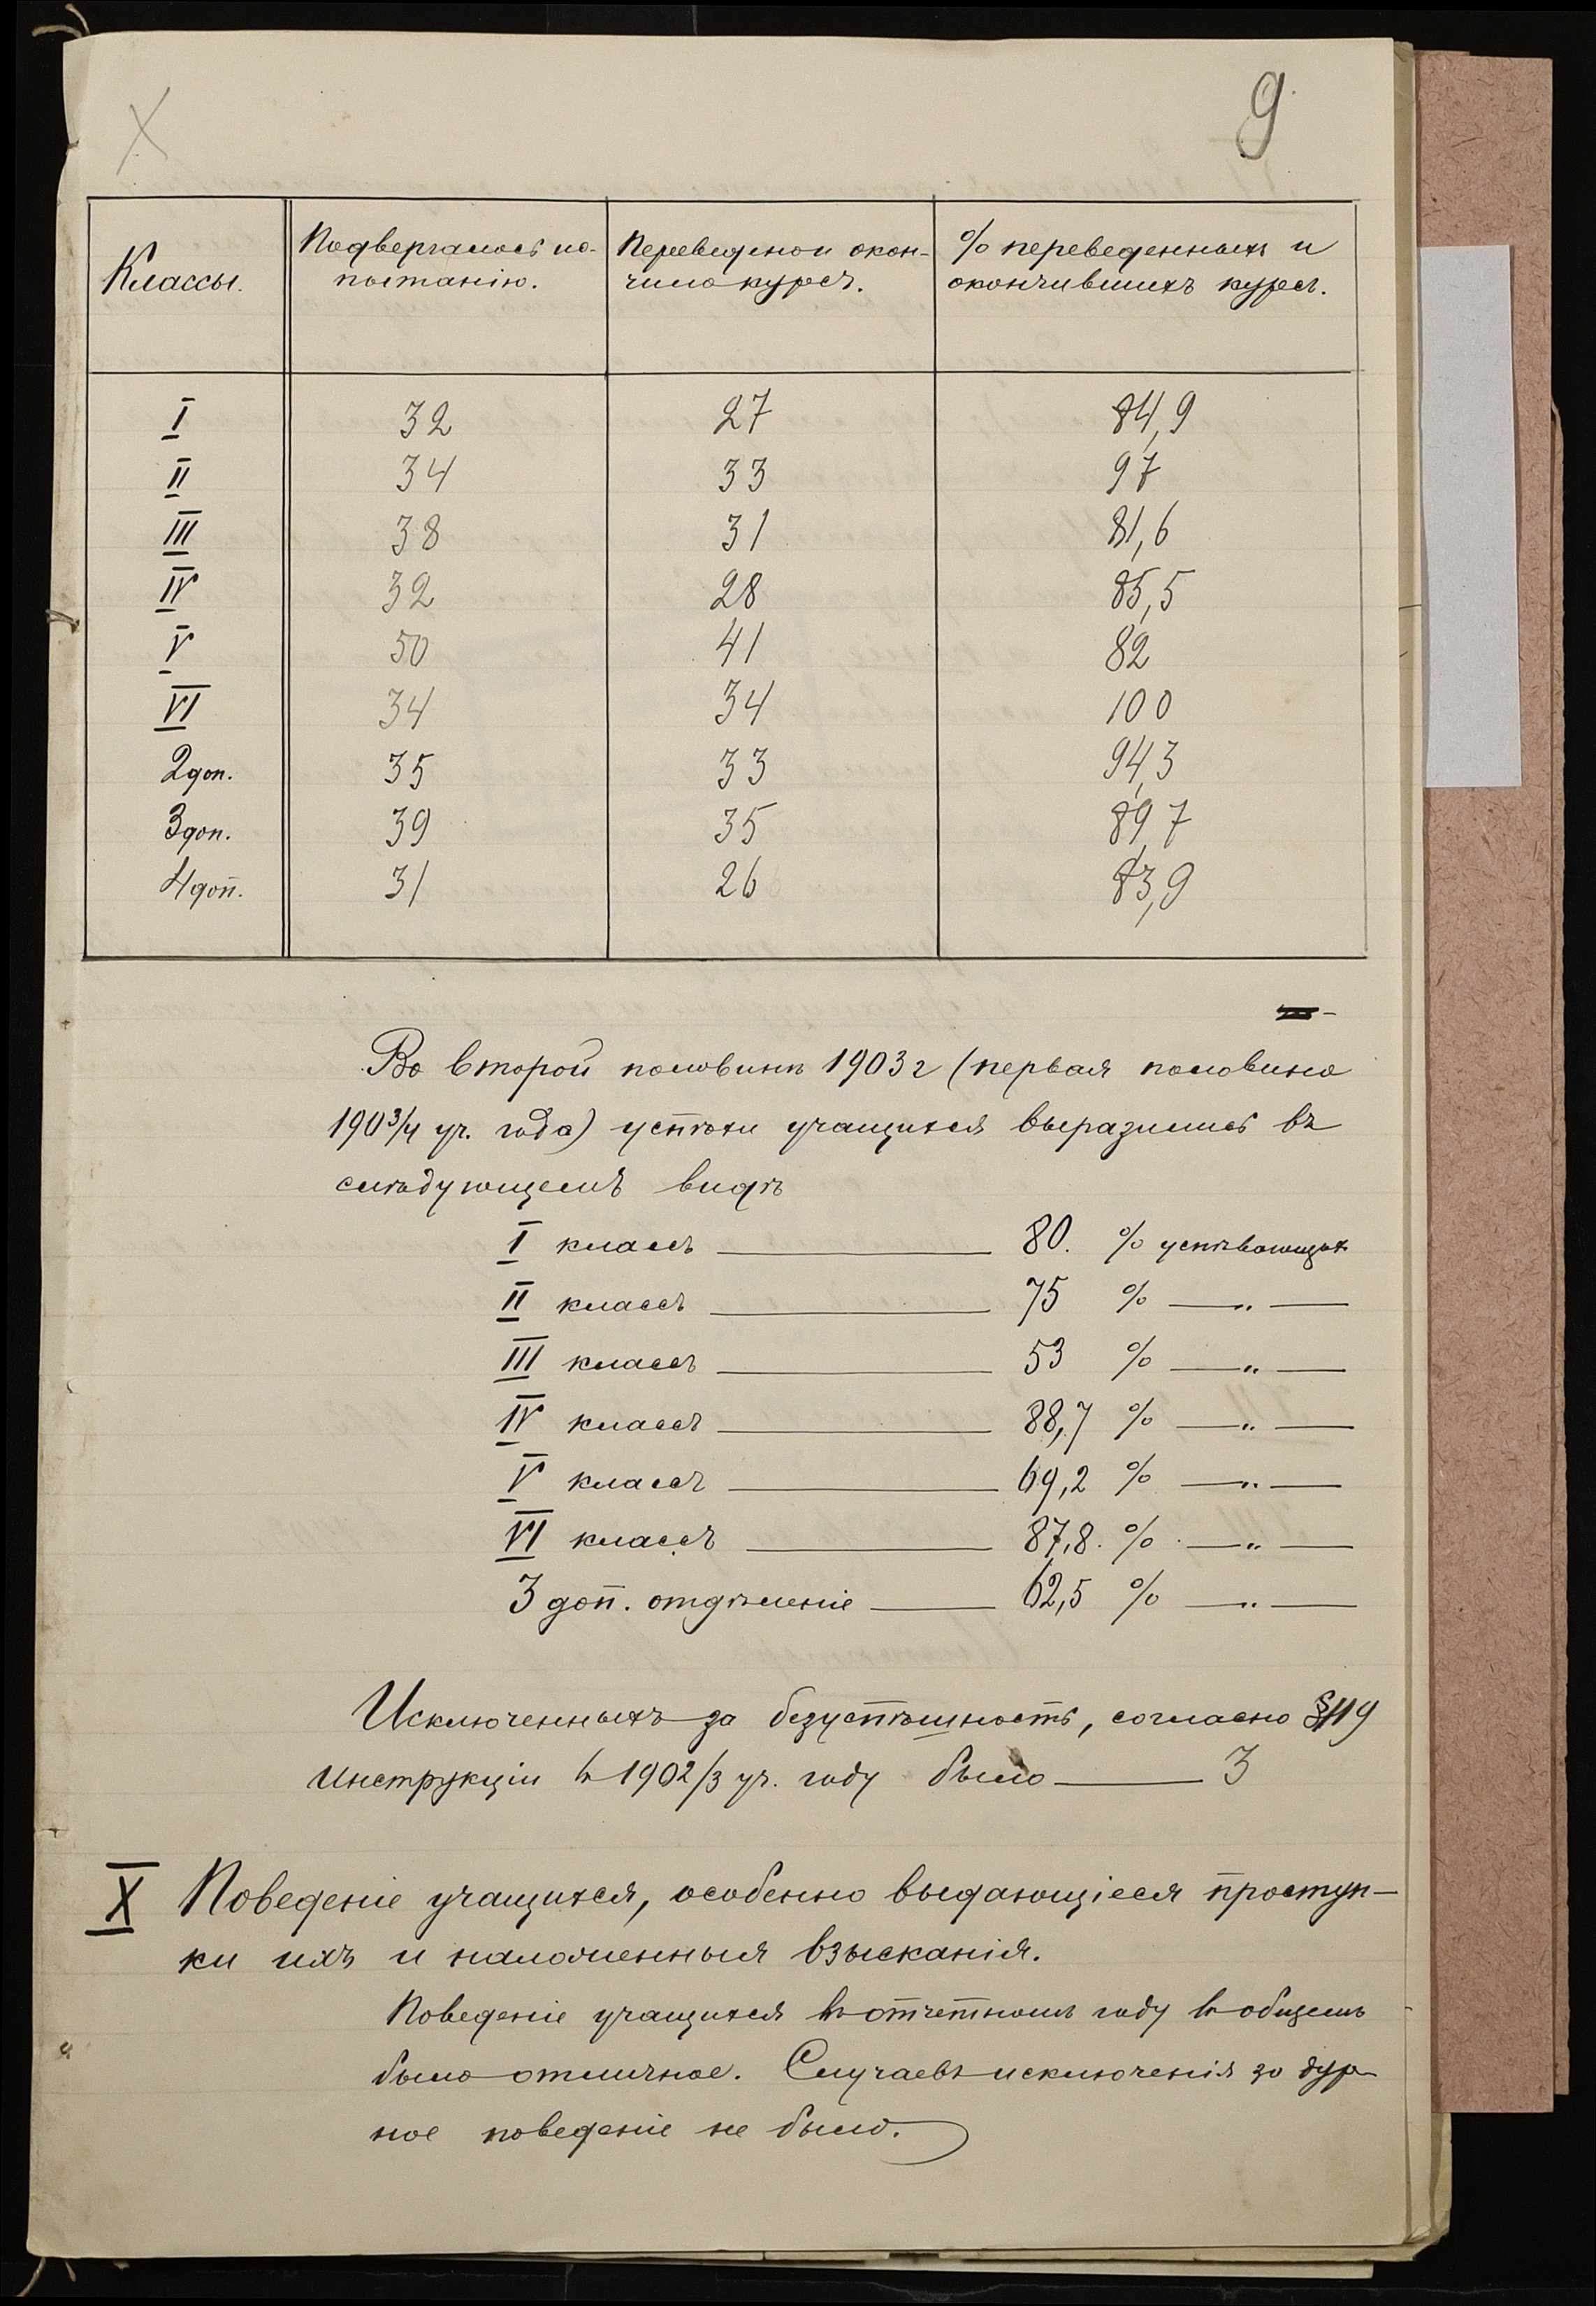 9
Классы. Подвергалось ис- Переведено и окон- % переведенныхъ и
пытанію. чило курсъ. окончившихъ курсъ.
I 32 27 84,9
II 34 33 97
III 38 31 81,6
IV 32 28 85,5
V 50 41 82
VI 34 34 100
2 доп. 35 33 94,3
3 доп. 39 35 89,7
4 доп. 31 26 83,9
Во второй половинѣ 1903 г (первая половина
1903/4 уч. года) успѣхи учащихся выразились въ
слѣдующемъ видѣ
I классъ — 80. % успѣвающихъ
II классъ — 75 % — „ —
III классъ — 53 % — „ —
IV классъ — 88,7 % — „ —
V классъ — 69,2 % — „ —
VI классъ — 87,8. % — „ —
3 доп. отдѣленіе — 62,5 % — „ —
Исключенныхъ за безуспѣшность, согласно §119
Инструкціи въ 1902/3 уч. году было — 3
X Поведеніе учащихся, особенно выдающіеся проступ-
ки ихъ и наложенныя взысканія.
Поведеніе учащихся въ отчетномъ году въ общемъ
было отличное. Случаевъ исключенія за дур-
ное поведеніе не было.